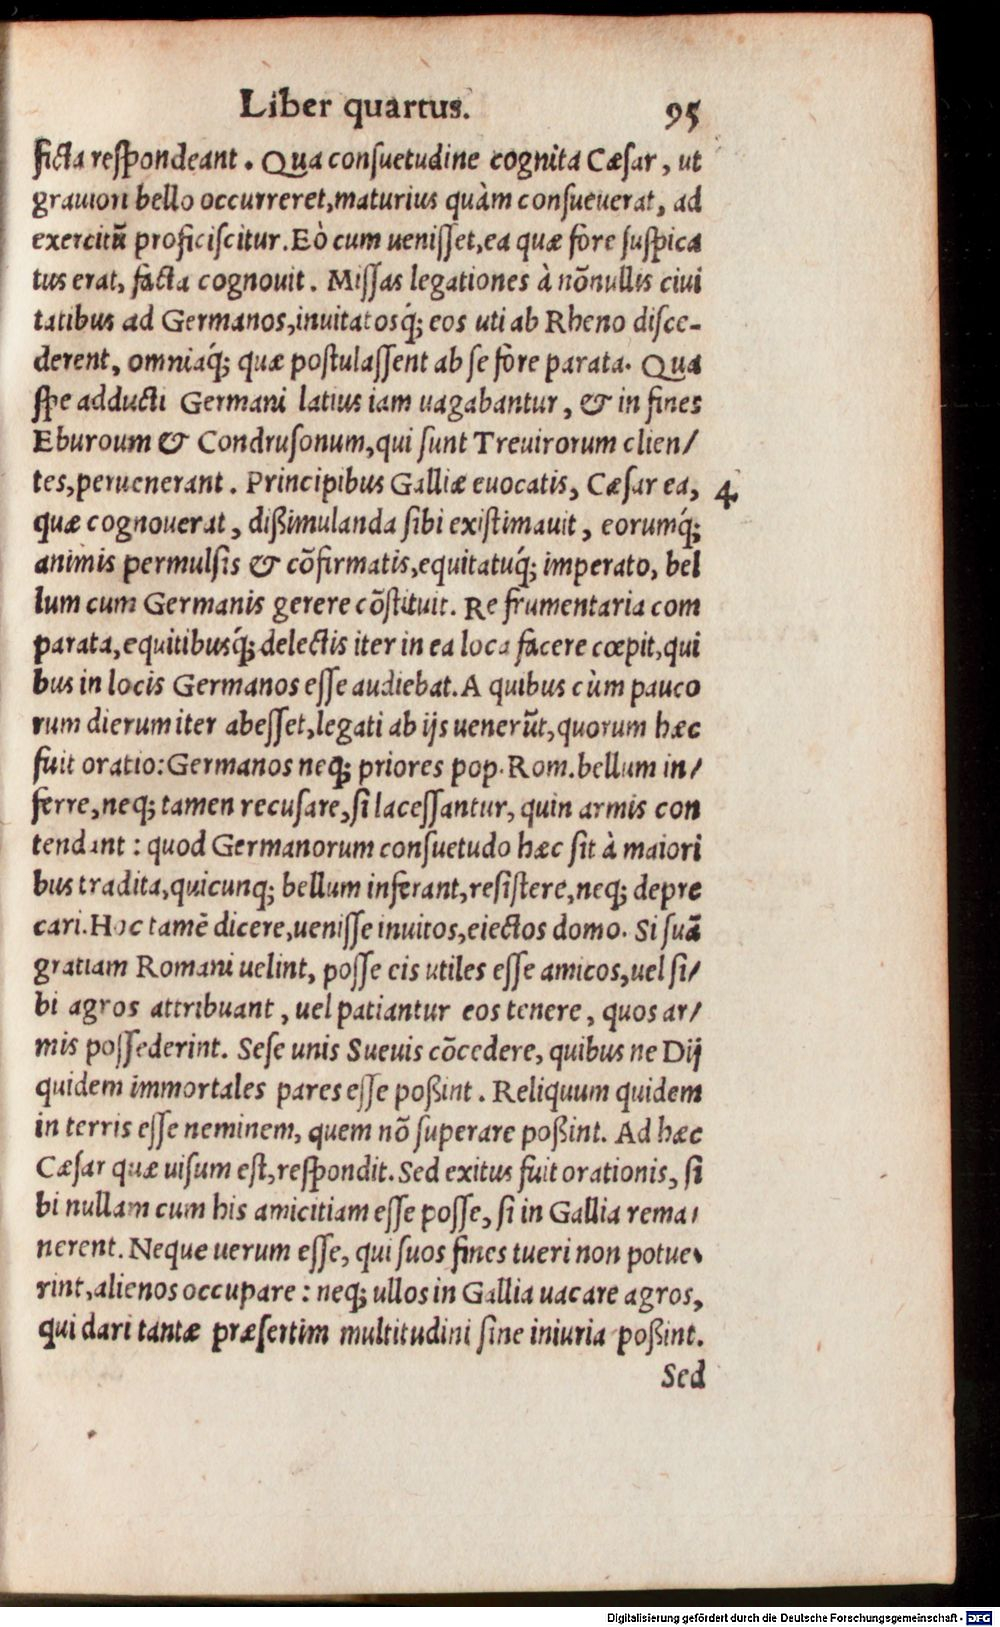 Liber quartus. 95
ficta respondeant. Qua consuetudine cognita Cæsar, ut
grauiori bello occurreret, maturius quàm consueuerat, ad
exercitū proficiscitur. Eò cum uenisset, ea quæ fore suspica
tus erat, facta cognouit. Missas legationes à nōnullis ciui
tatibus ad Germanos, inuitatosq́; eos uti ab Rheno disce-
derent, omniaq́; quæ postulassent ab se fore parata. Qua
spe adducti Germani latius iam uagabantur, & in fines
Eburoum & Condrusonum, qui sunt Treuirorum clien/
tes, peruenerant. Principibus Galliæ euocatis, Cæsar ea,
4
quæ cognouerat, dißimulanda sibi existimauit, eorumq́;
animis permulsis & cōfirmatis, equitatuq́; imperato, bel
lum cum Germanis gerere cōstituit. Re frumentaria com
parata, equitibusq́; delectis iter in ea loca facere cœpit, qui
bus in locis Germanos esse audiebat. A quibus cùm pauco
rum dierum iter abesset, legati ab ijs uenerūt, quorum hæc
fuit oratio: Germanos neq; priores pop. Rom. bellum in/
ferre, neq; tamen recusare, si lacessantur, quin armis con
tendant: quod Germanorum consuetudo hæc sit à maiori
bus tradita, quicunq; bellum inferant, resistere, neq; depre
cari. Hoc tamē dicere, uenisse inuitos, eiectos domo. Si suā
gratiam Romani uelint, posse eis utiles esse amicos, uel si/
bi agros attribuant, uel patiantur eos tenere, quos ar/
mis possederint. Sese unis Sueuis cōcedere, quibus ne Dij
quidem immortales pares esse poßint. Reliquum quidem
in terris esse neminem, quem nō superare poßint. Ad hæc
Cæsar quæ uisum est, respondit. Sed exitus fuit orationis, si
bi nullam cum his amicitiam esse posse, si in Gallia rema/
nerent. Neque uerum esse, qui suos fines tueri non potue/
rint, alienos occupare: neq; ullos in Gallia uacare agros,
qui dari tantæ præsertim multitudini sine iniuria poßint.
Sed
Digitalisierung gefördert durch die Deutsche Forschungsgemeinschaft - DFG